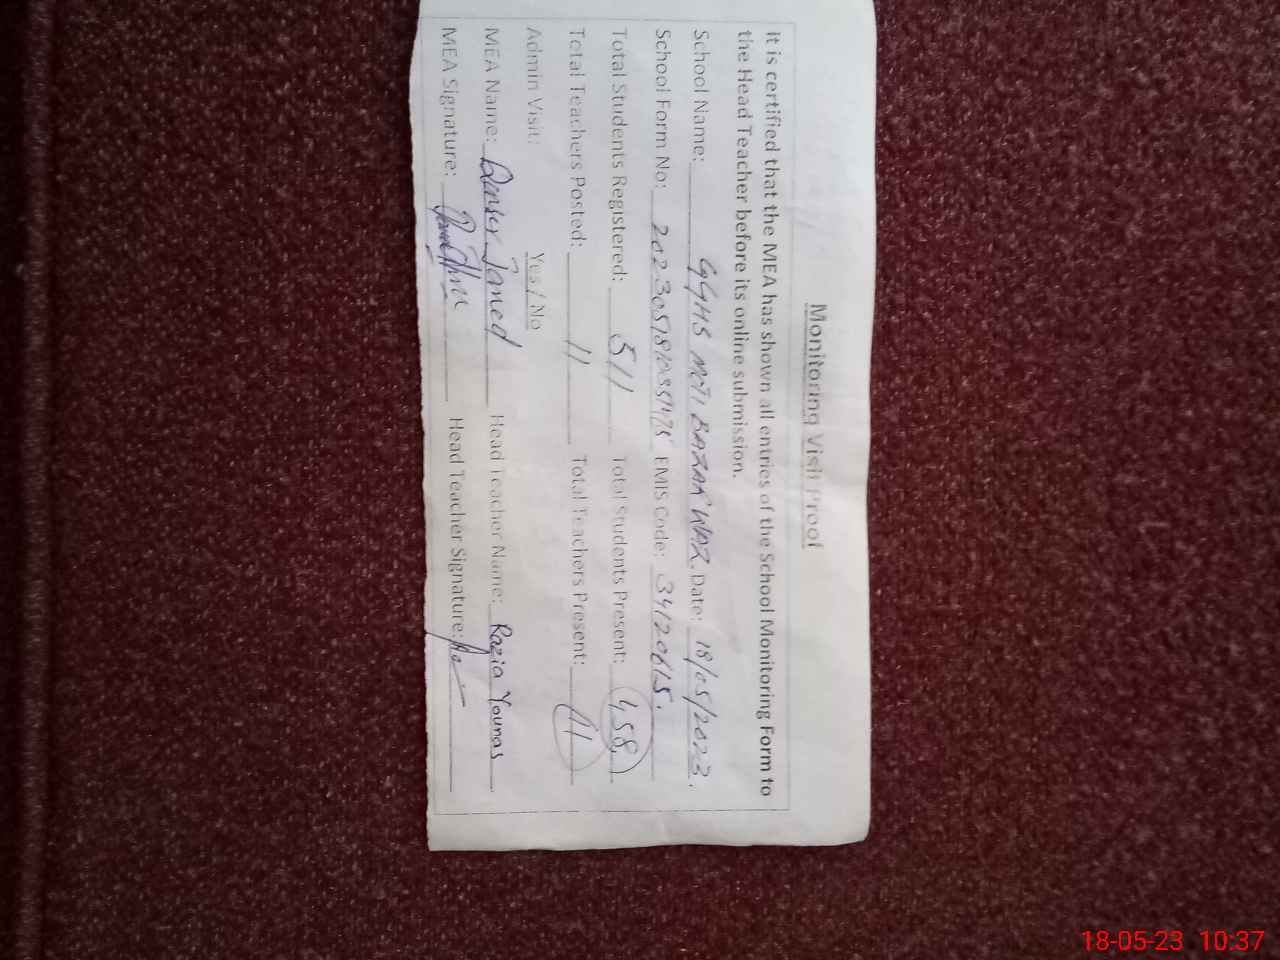 Monitoring Visit Proof
It is certified that the MEA has shown all entries of the School Monitoring Form to
the Head Teacher before its online submission.
School Name: GGHS MOTI BAZAR WAZ. Date: 18/05/2023.
School Form No: EMIS Code: 34120615.
Total Students Registered: 511 Total Students Present: 458
Total Teachers Posted: 11 Total Teachers Present: 11
Admin Visit: Yes / No
MEA Name: Head Teacher Name: Razia Younas
MEA Signature: Head Teacher Signature:
18-05-23 10:37